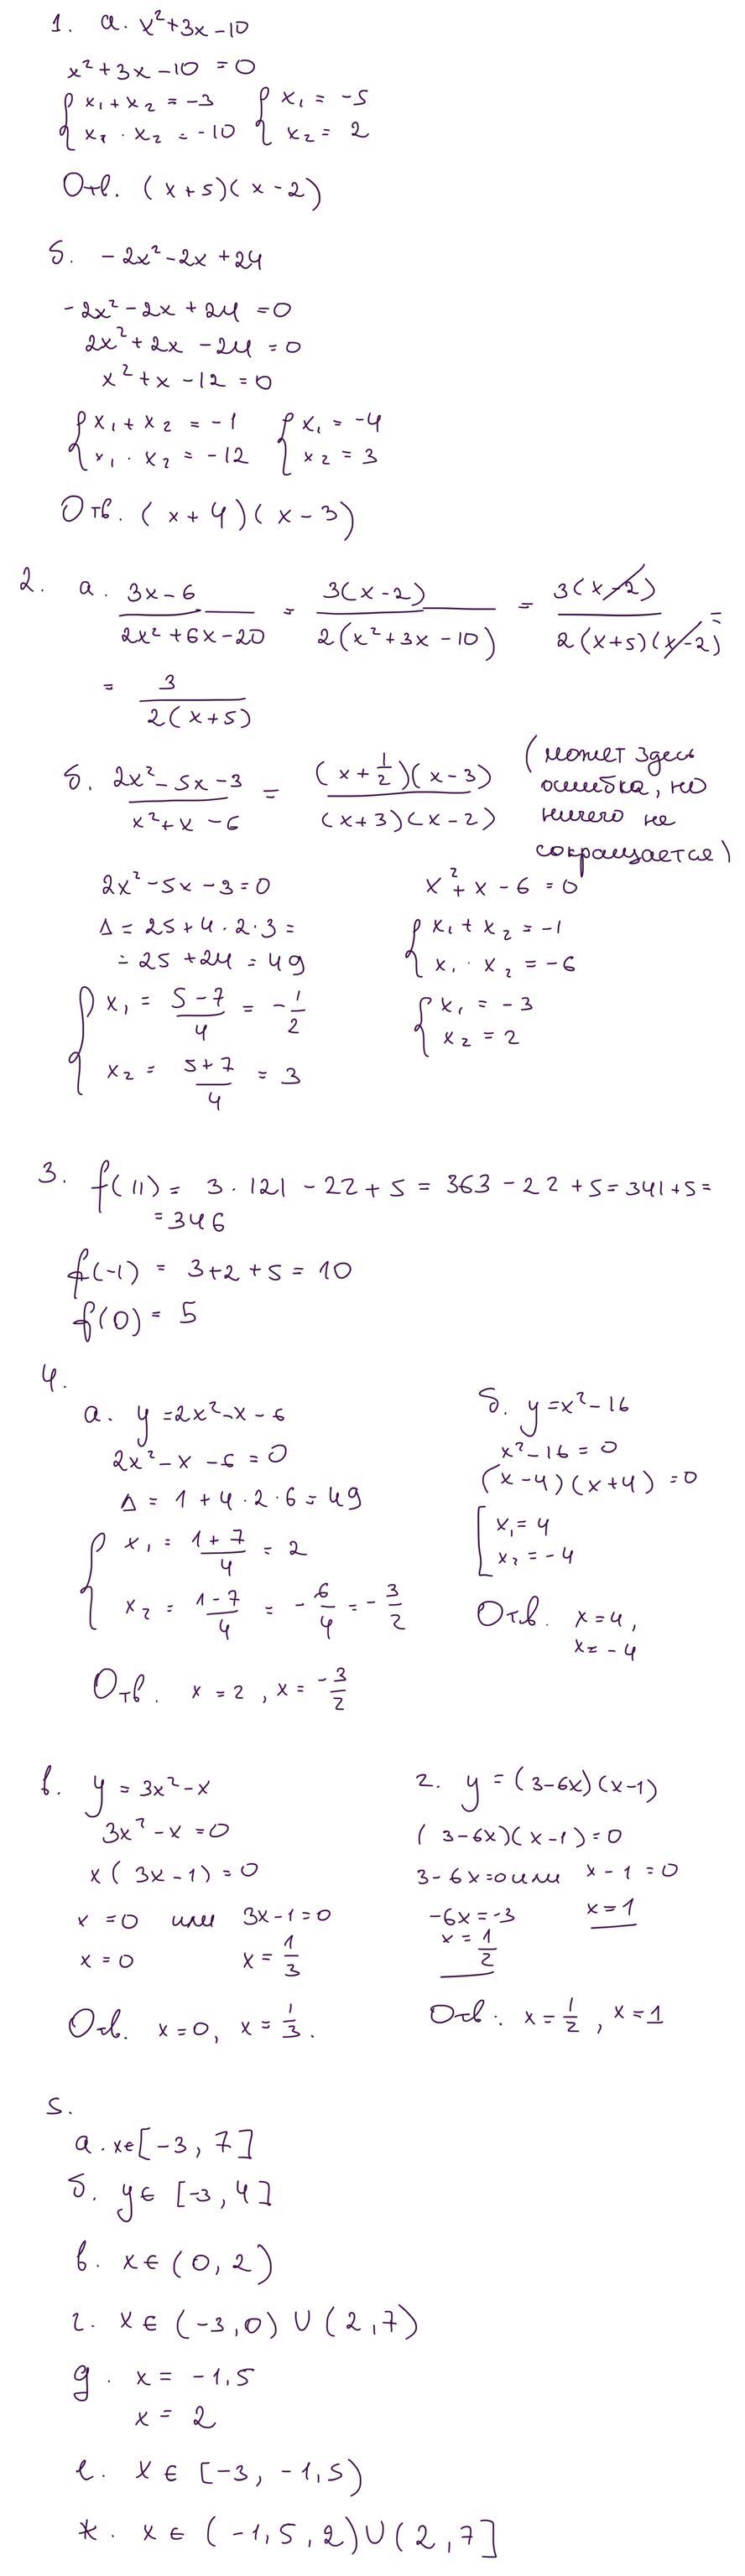 1. а. x²+3x-10
x²+3x-10=0
{x₁+x₂=-3 {x₁=-5
x₁·x₂=-10 x₂=2
Отв. (x+5)(x-2)
б. -2x²-2x+24
-2x²-2x+24=0
2x²+2x-24=0
x²+x-12=0
{x₁+x₂=-1 {x₁=-4
x₁·x₂=-12 x₂=3
Отв. (x+4)(x-3)
2. а. (3x-6)/(2x²+6x-20) = 3(x-2)/(2(x²+3x-10)) = 3(x-2)/(2(x+5)(x-2)) =
= 3/(2(x+5))
б. (2x²-5x-3)/(x²+x-6) = ((x+1/2)(x-3))/((x+3)(x-2))
(может здесь
ошибка, но
ничего не
сокращается)
2x²-5x-3=0
Δ=25+4·2·3=
=25+24=49
{x₁=(5-7)/4=-1/2
x₂=(5+7)/4=3
x²+x-6=0
{x₁+x₂=-1
x₁·x₂=-6
{x₁=-3
x₂=2
3. f(11)=3·121-22+5=363-22+5=341+5=
=346
f(-1)=3+2+5=10
f(0)=5
4.
а. y=2x²-x-6
2x²-x-6=0
Δ=1+4·2·6=49
{x₁=(1+7)/4=2
x₂=(1-7)/4=-6/4=-3/2
Отв. x=2, x=-3/2
б. y=x²-16
x²-16=0
(x-4)(x+4)=0
[x₁=4
x₂=-4
Отв. x=4,
x=-4
в. y=3x²-x
3x²-x=0
x(3x-1)=0
x=0 или 3x-1=0
x=0 x=1/3
Отв. x=0, x=1/3.
г. y=(3-6x)(x-1)
(3-6x)(x-1)=0
3-6x=0 или x-1=0
-6x=-3 x=1
x=1/2
Отв. x=1/2, x=1
5.
а. x∈[-3,7]
б. y∈[-3,4]
в. x∈(0,2)
г. x∈(-3,0)∪(2,7)
д. x=-1,5
x=2
е. x∈[-3,-1,5)
ж. x∈(-1,5,2)∪(2,7]